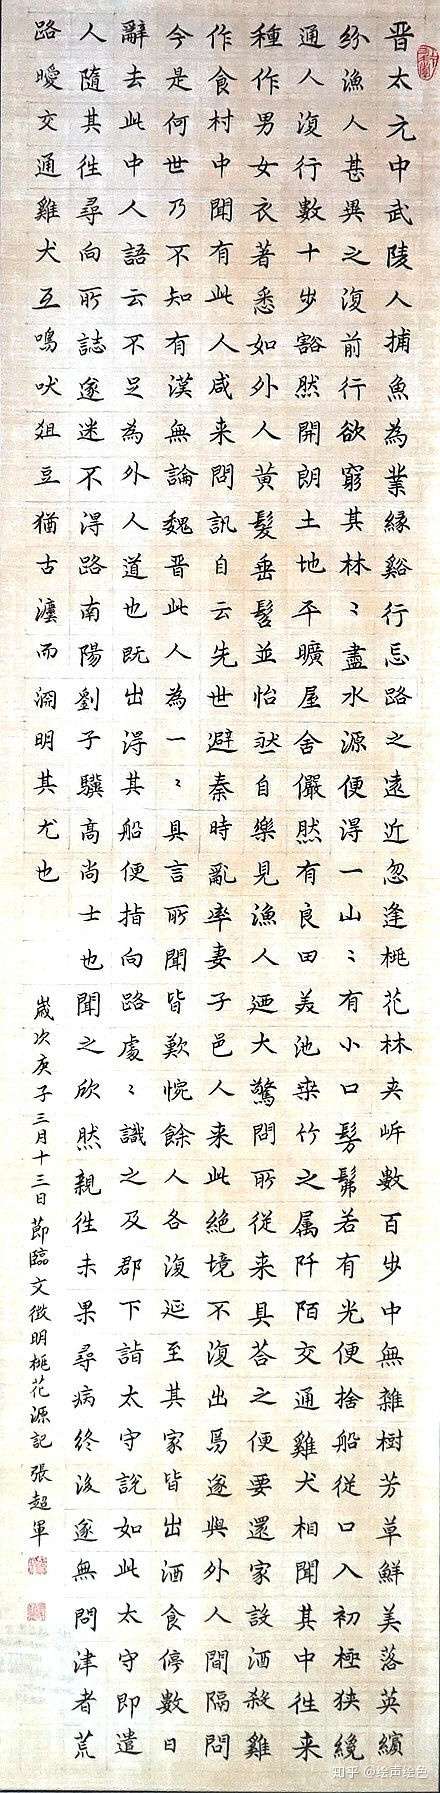 晋太元中武陵人捕魚為業縁谿行忘路之遠近忽逢桃花林夾岍數百步中無雜樹芳草鮮美落英繽
紛漁人甚異之復前行欲窮其林〻盡水源便得一山〻有小口髣髴若有光便捨船從口入初極狹纔
通人復行數十步豁然開朗土地平曠屋舍儼然有良田美池桒竹之属阡陌交通雞犬相聞其中徃来
種作男女衣著悉如外人黄髮垂髫並怡然自樂見漁人廼大驚問所從来具荅之便要還家設酒殺雞
作食村中聞有此人咸来問訊自云先世避秦時亂率妻子邑人来此絶境不復出焉遂與外人間隔問
今是何世乃不知有漢無論魏晋此人為一〻具言所聞皆歎惋餘人各復延至其家皆出酒食停數日
辭去此中人語云不足為外人道也既出得其船便指向路處〻識之及郡下詣太守說如此太守即遣
人隨其徃尋向所誌遂迷不得路南陽劉子驥高尚士也聞之欣然親徃未果尋病終後遂無問津者荒
路曖交通雞犬互鳴吠俎豆猶古灋而淵明其尤也
歲次庚子三月十三日節臨文徵明桃花源記張超軍
知乎 @绘声绘色